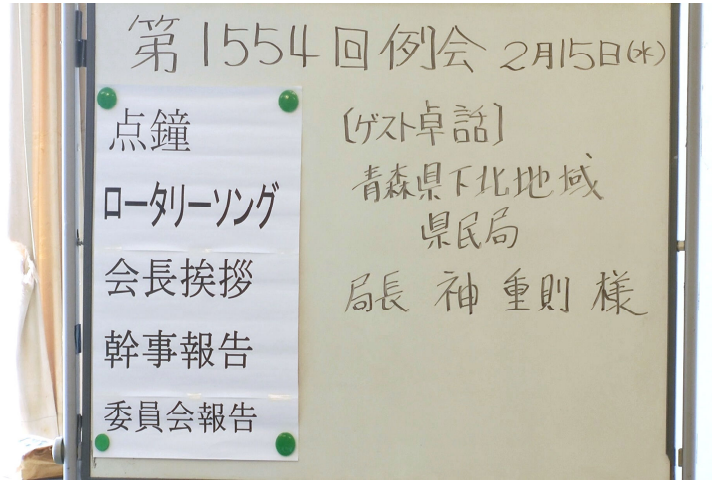 第1554回例会 2月15日(水)
点鐘
ロータリーソング
会長挨拶
幹事報告
委員会報告
[ゲスト卓話]
青森県下北地域
県民局
局長 神 重則 様